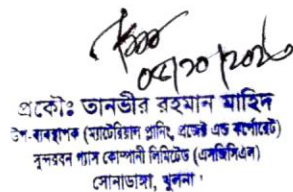 ০৫/১০/২০২০
প্রকৌঃ তানভীর রহমান মাহিন
উপ-ব্যবস্থাপক (ম্যাটেরিয়াল প্লানিং, বাজেট এন্ড কর্পোরেট)
সুন্দরবন গ্যাস কোম্পানী লিমিটেড (এসজিসিএল)
সোনাডাঙ্গা, খুলনা।